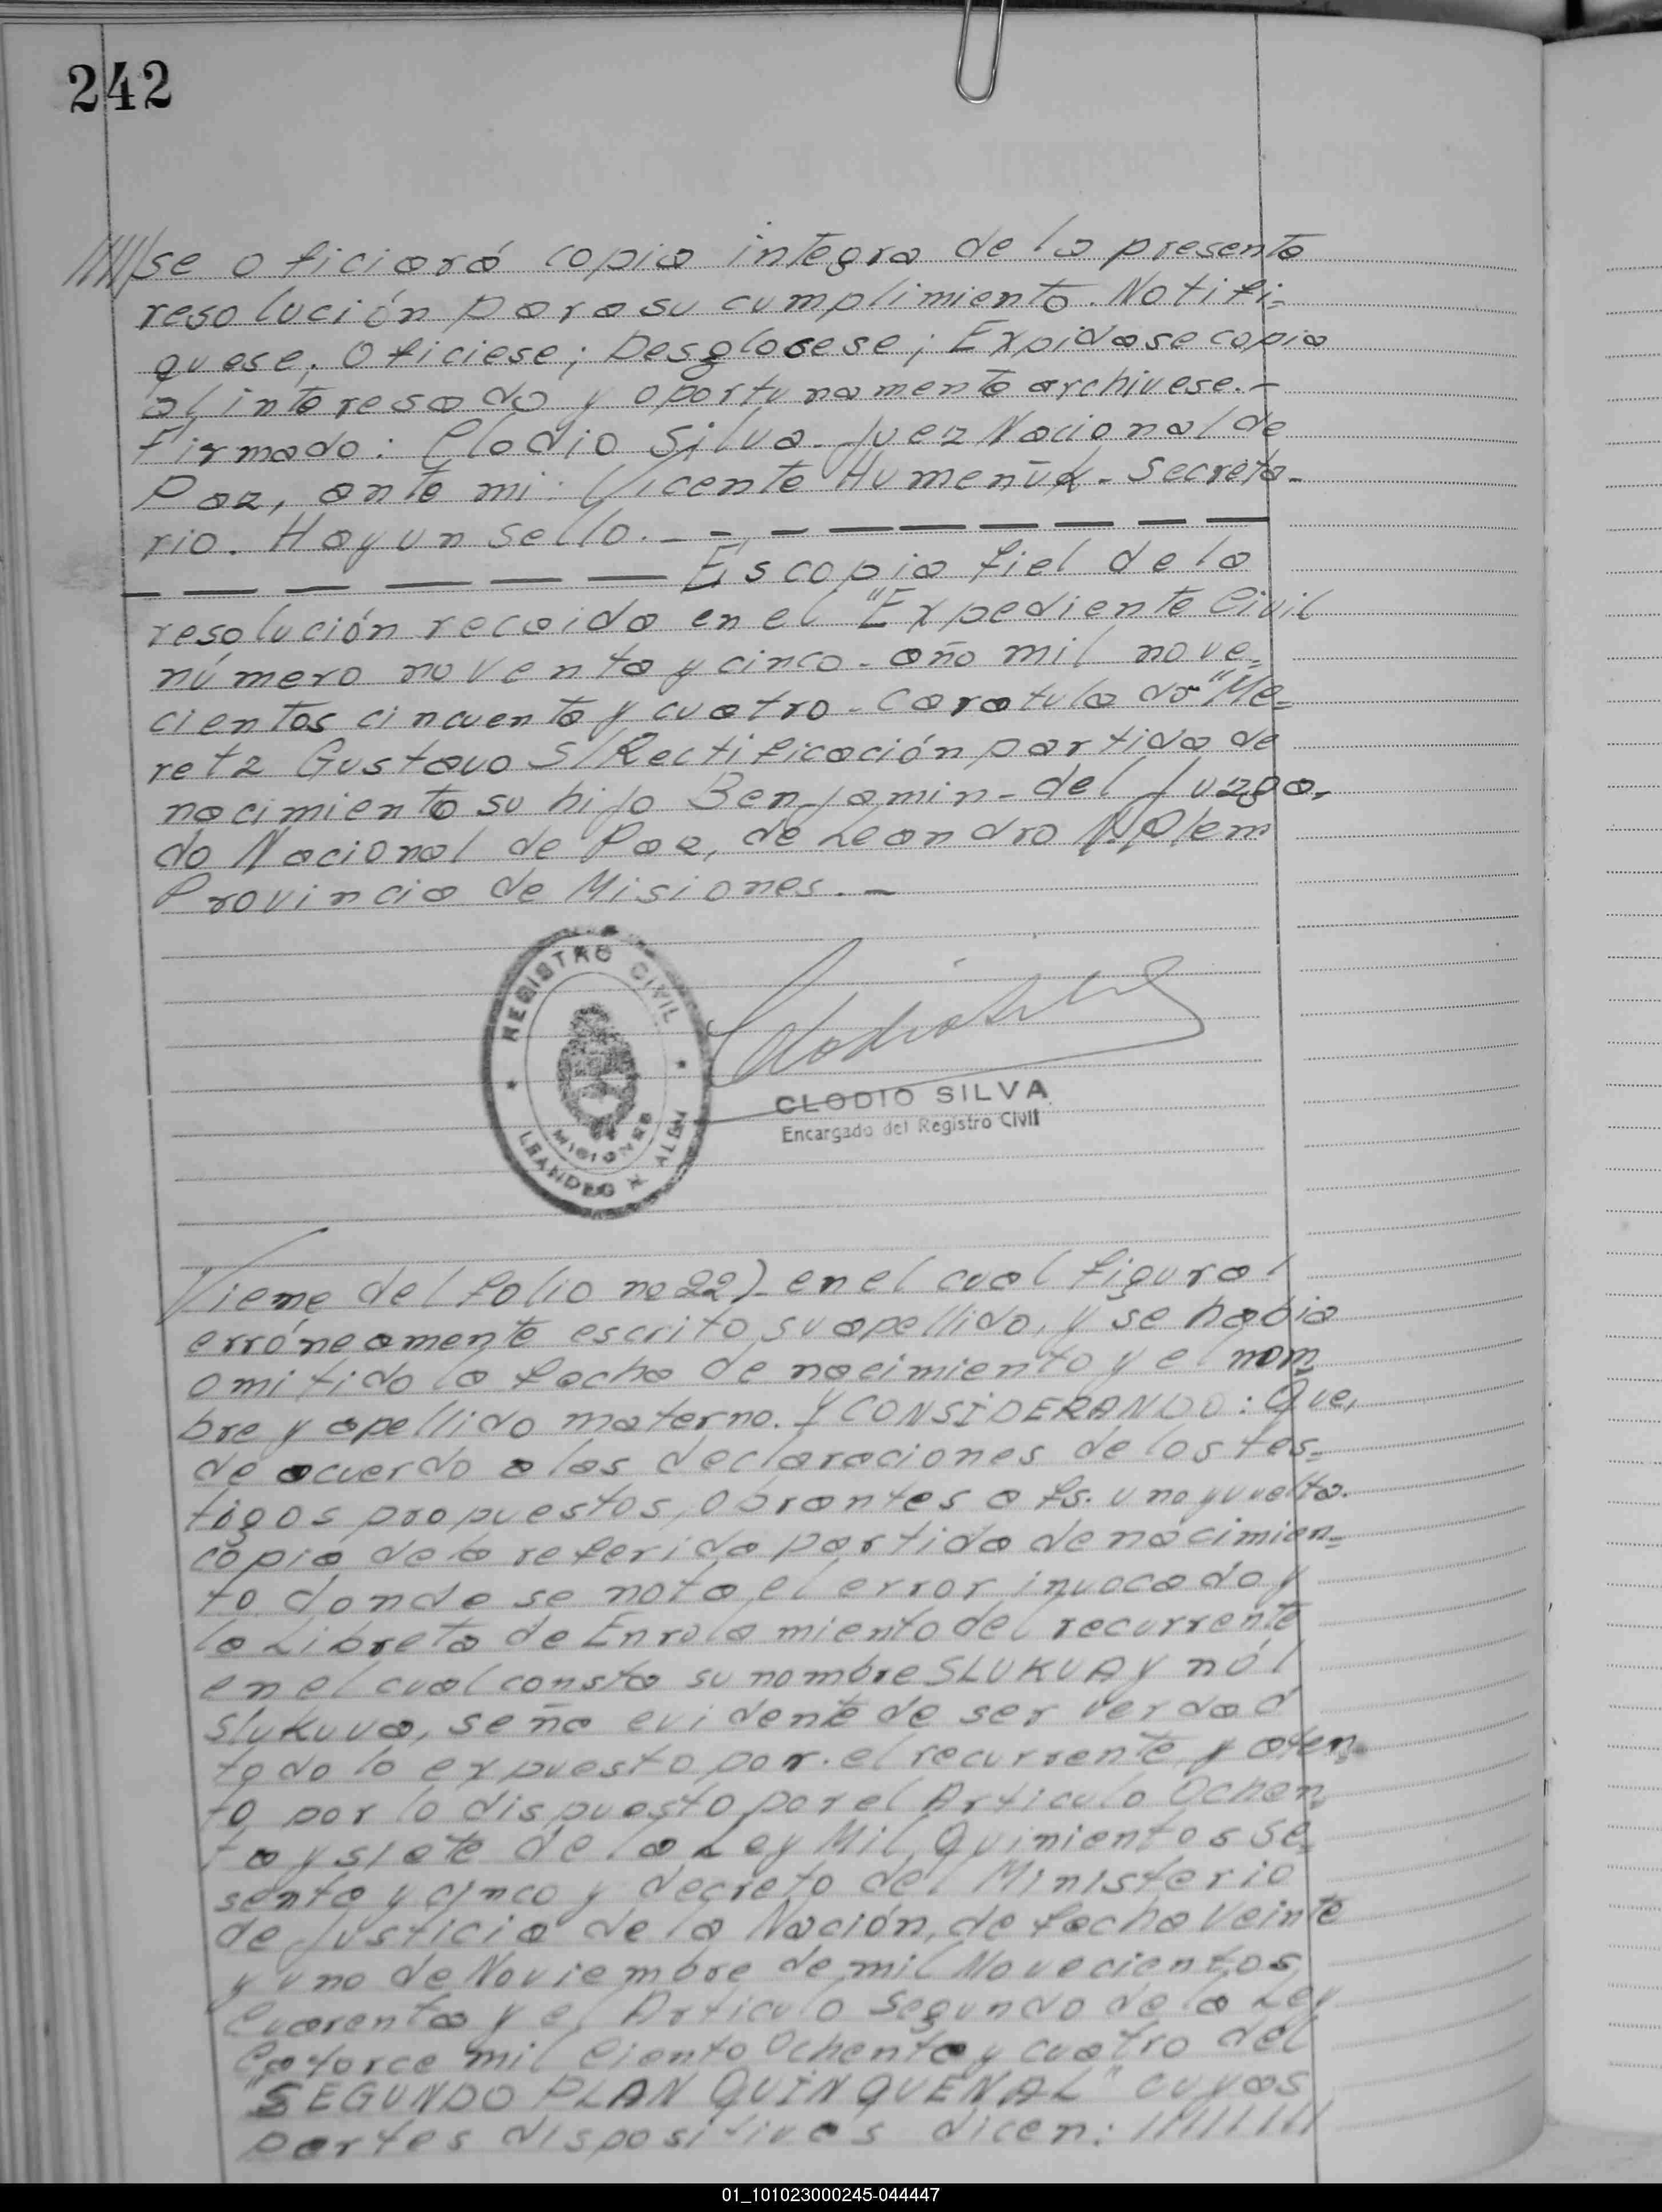 242
/////se oficiará copia integra de la presente
resolución para su cumplimiento. Notifi=
quese. Oficiese; Desglosese; Expidase copia
al interesado y oportunamente archivese.-
Firmado: Clodio Silva. Juez Nacional de
Paz, ante mi: Vicente Humeñuk. Secreta-
rio. Hay un sello. - - - - - - - - - -
- - - - - - Es copia fiel de la
resolución recaida en el "Expediente Civil
número noventa y cinco - año mil nove=
cientos cincuenta y cuatro - caratulado "Me=
retz Gustavo S/Rectificación partida de
nacimiento su hijo Benjamin - del Juzga-
do Nacional de Paz, de Leandro N. Alem
Provincia de Misiones. -
REGISTRO CIVIL
MISIONES
LEANDRO N. ALEM
Clodio Silva
CLODIO SILVA
Encargado del Registro Civil
Viene del folio no 22)- en el cual figura
erróneamente escrito su apellido, y se habia
omitido la fecha de nacimiento y el nom=
bre y apellido materno. Y CONSIDERANDO: Que,
de acuerdo a las declaraciones de los tes=
tigos propuestos, obrantes a fs. uno y vuelta.
copia de la referida partida de nacimien=
to donde se nota el error invocado y
la Libreta de Enrolamiento del recurrente
en el cual consta su nombre SLUKUA y nó
slukuva, seña evidente de ser verdad
todo lo expuesto por el recurrente y aten=
to por lo dispuesto por el Articulo Ochen=
ta y siete de la Ley Mil Quinientos Se=
senta y cinco y decreto del Ministerio
de Justicia de la Nación, de fecha Veinte
y uno de Noviembre de mil Novecientos
Cuarenta y el Articulo Segundo de la Ley
Catorce mil Ciento Ochenta y cuatro del
"SEGUNDO PLAN QUINQUENAL" cuyas
partes dispositivas dicen: /////////
01_101023000245-044447